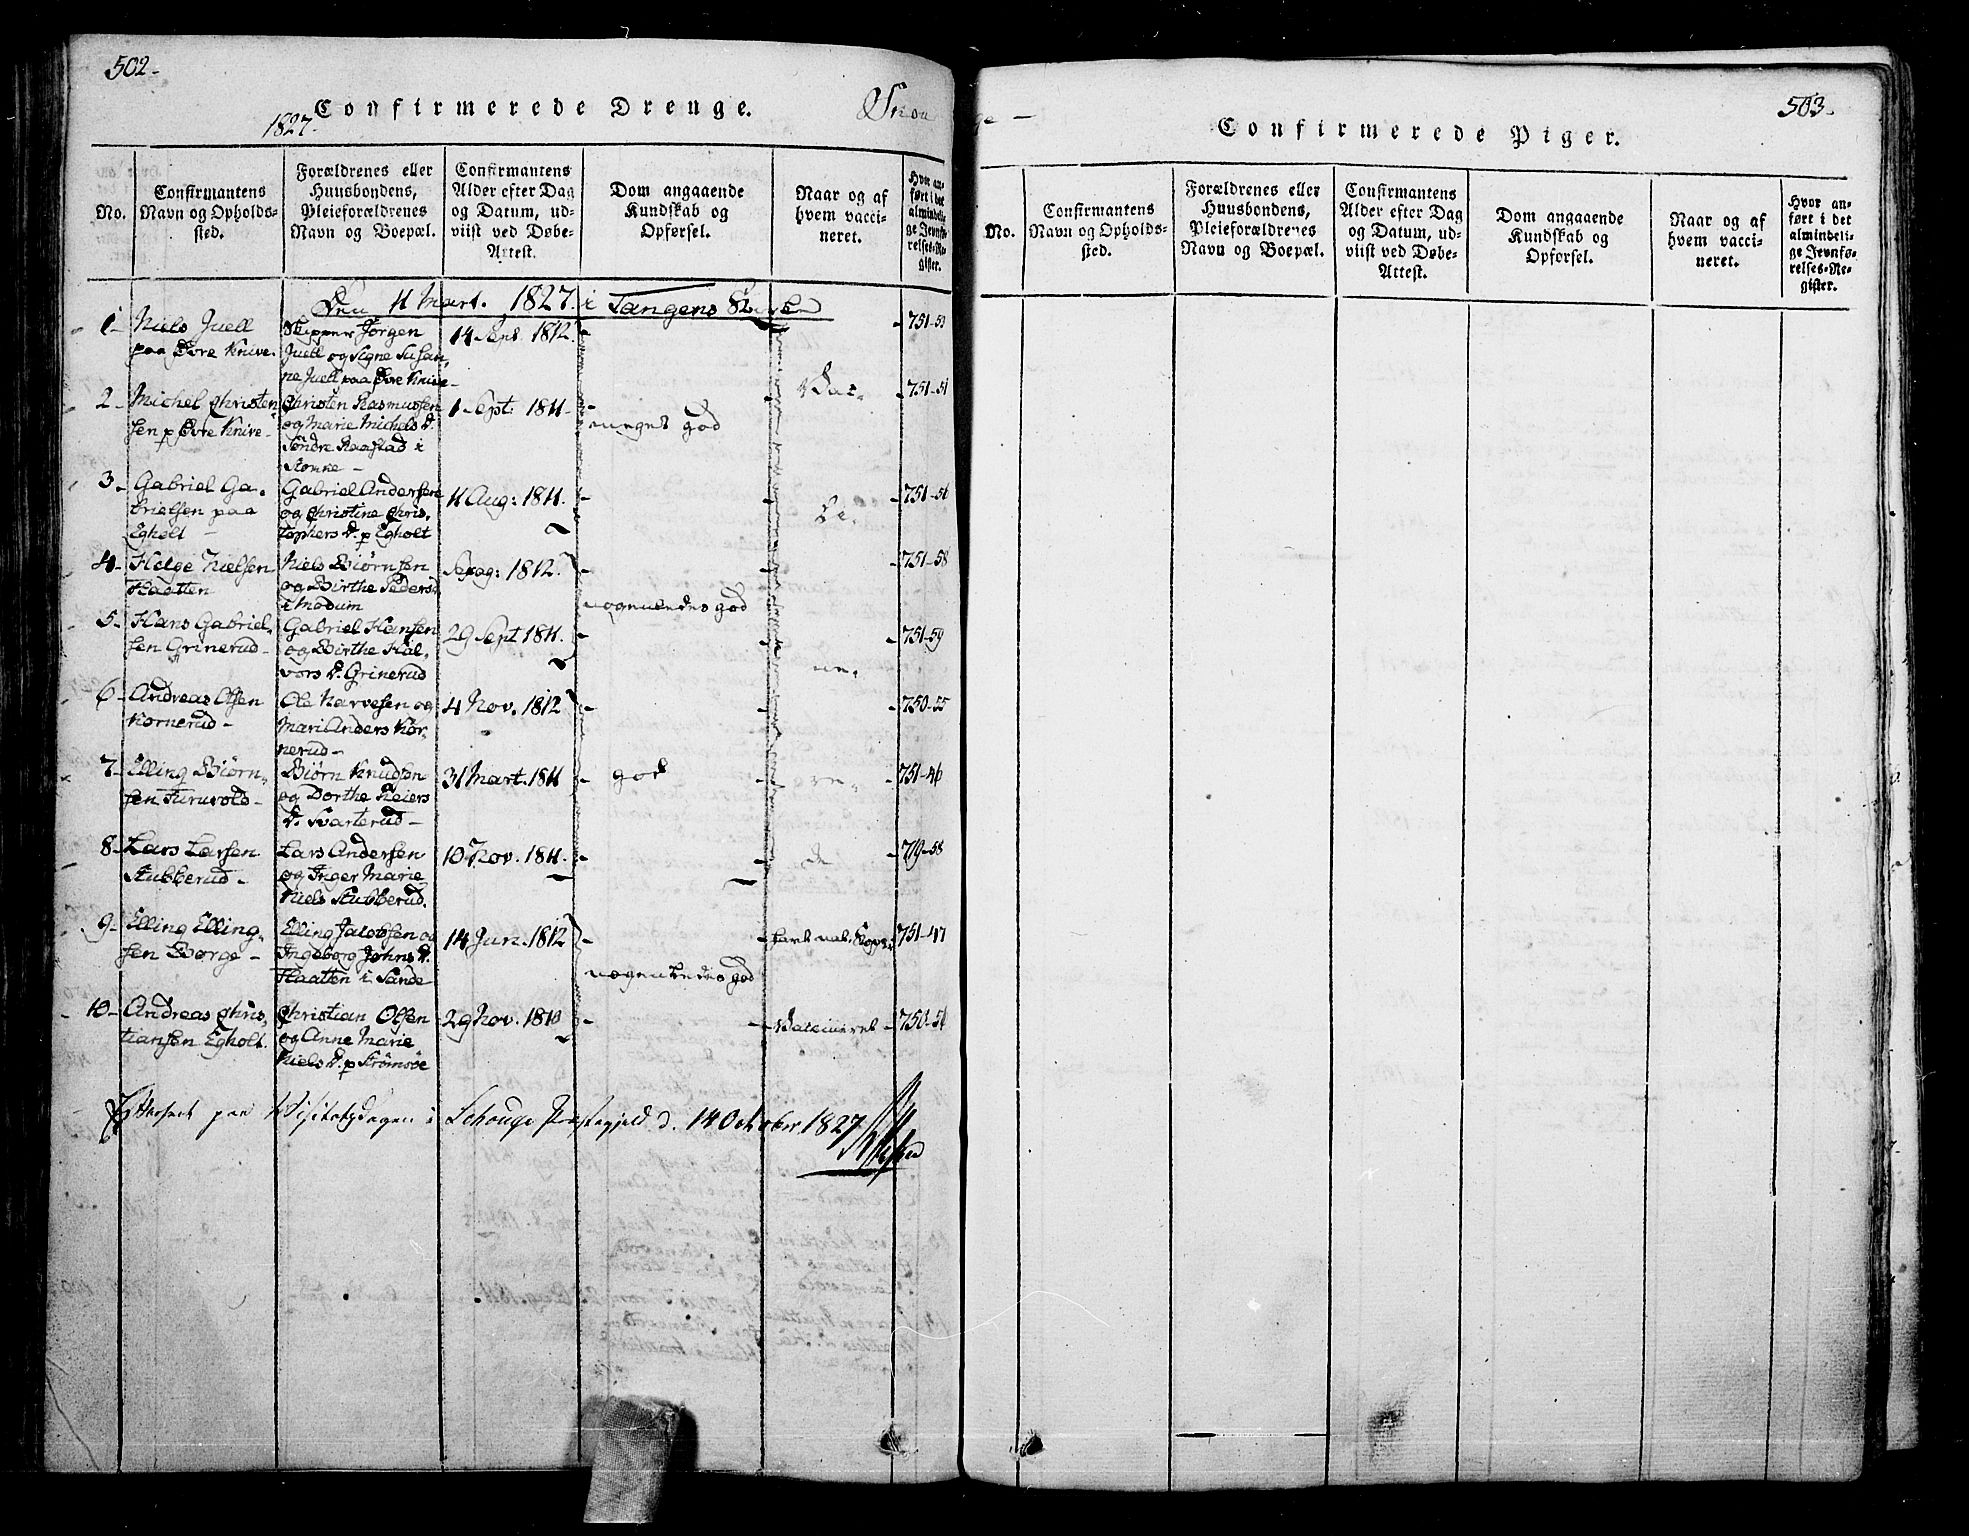 502-
Confirmerede Drenge.
1827-
No.
Confirmantens Navn og Opholds-
sted.
Forældrenes eller
Huusbondens,
Pleieforældrenes
Navn og Boepæl.
Confirmantens
Alder efter Dag
og Datum, ud-
viist ved Døbe-
Attest.
Dom angaaende
Kundskab og
Opførsel.
Naar og af
hvem vacci-
neret.
Hvor an-
ført i det
almindeli-
ge Jevnfø-
relses-Re-
gister.
Den 11 Mart. 1827. i Tangens Kirke
1- Niels Juell
paa Øvre Knive.
Skipper Jørgen
Juell og Signe Susan,
ne Juell paa Øvre Knive-
14 Sept. 1812.
751-53
2- Michel Christen
sen p Øvre Knive-
Christen Rasmussen
og Marie Michels D.
Søndre Raastad i
1 Sept: 1811-
meget god
Vac-
751-51
3- Gabriel Ga.
brielsen paa
Egholt -
Gabriel Andersen
og Christine Chris,
tophers D. p Egholt
11 Aug: 1811.
ci.
751-56
4- Helge Nielsen
Haatten
Niels Biørnsen
og Birthe Peders
i Modum
1812.
nogenledes god
751-58
5- Hans Gabriel,
sen Grinerud-
Gabriel Hansen
og Birthe Hal,
vors D. Grinerud
29 Sept 1811.
ne.
751-59
6- Andreas Olsen
Kornerud-
Ole Narvesen og
Mari Anders Kor,
nerud-
4 Nov. 1812
750-55
7- Elling Biørn,
sen Furuvold-
Biørn Knudsen
og Dorthe Reiers
D. Svarterud-
31 Mart. 1811
god
751-46
8- Lars Larsen
Stubberud-
Lars Andersen
og Inger Marie
Niels Stubberud.
10 Nov. 1811.
719-58
9- Elling Elling,
sen Borge-
Elling Jacobsen og
Ingeborg Johns D.
Haatten i Sande
14 Jun. 1812
nogenledes god
havt nat. Kopper
751-47
10- Andreas Chris,
tiansen Egholt.
Christian Olsen
og Anne Marie
Niels D. p Strømsøe
29 Nov. 1810
Vaccineret-
750-54
Efterseet paa Visitatsdagen i Schouge Præstegjeld d. 14 October 1827
503-
Confirmerede Piger.
No.
Confirmantens
Navn og Opholds-
sted.
Forældrenes eller
Huusbondens,
Pleieforældrenes
Navn og Boepæl.
Confirmantens
Alder efter Dag
og Datum, ud-
viist ved Døbe-
Attest.
Dom angaaende
Kundskab og
Opførsel.
Naar og af
hvem vacci-
neret.
Hvor an-
ført i det
almindeli-
ge Jevnfø-
relses-Re-
gister.